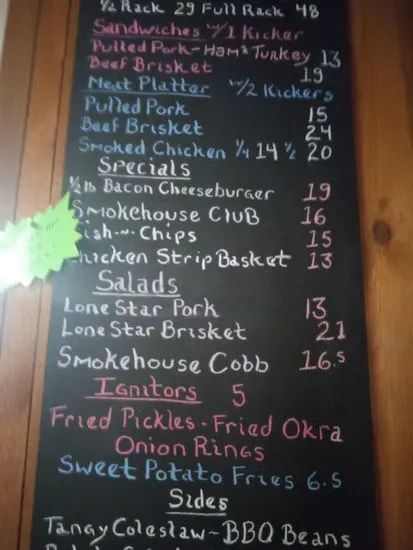 1/2 Rack 29 Full Rack 48
Sandwiches w/1 Kicker
Pulled Pork-Ham & Turkey 13
Beef Brisket 19
Meat Platter w/2 Kickers
Pulled Pork 15
Beef Brisket 24
Smoked Chicken 1/4 14 1/2 20
Specials
1/2 lb Bacon Cheeseburger 19
Smokehouse Club 16
ish-n-Chips 15
hicken Strip Basket 13
Salads
Lone Star Pork 13
Lone Star Brisket 21
Smokehouse Cobb 16.5
Ignitors 5
Fried Pickles-Fried Okra
Onion Rings
Sweet Potato Fries 6.5
Sides
Tangy Coleslaw~BBQ Beans